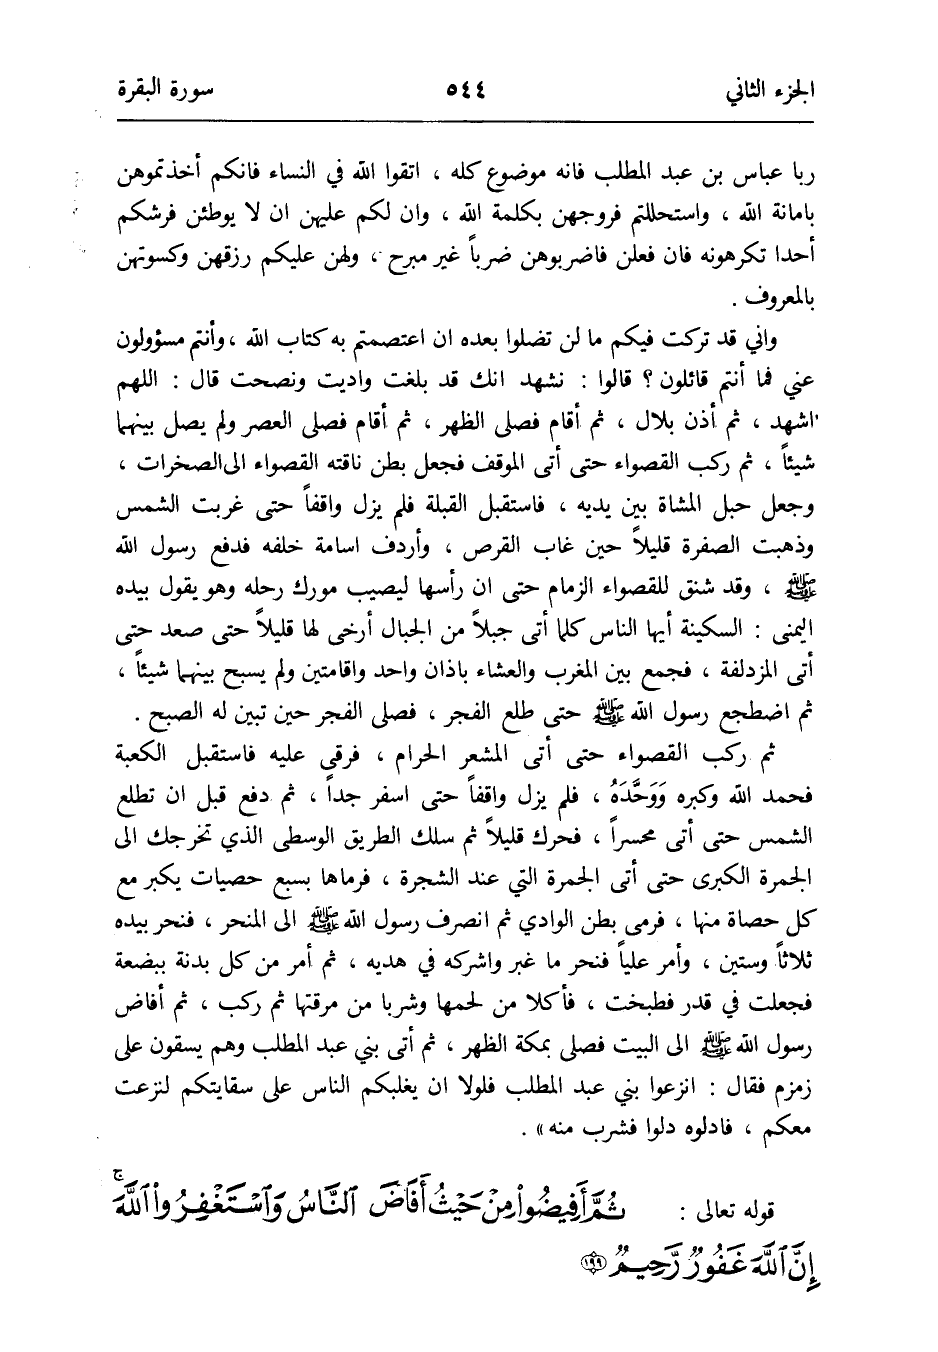 الجزء الثاني ٥٤٤ سورة البقرة
ربا عباس بن عبد المطلب فانه موضوع كله ، اتقوا الله في النساء فانكم أخذتموهن
بامانة الله ، واستحللتم فروجهن بكلمة الله ، وان لكم عليهن ان لا يوطئن فرشكم
أحدا تكرهونه فان فعلن فاضربوهن ضرباً غير مبرح ، ولهن عليكم رزقهن وكسوتهن
بالمعروف .
واني قد تركت فيكم ما لن تضلوا بعده ان اعتصمتم به كتاب الله ، وأنتم مسؤولون
عني فما أنتم قائلون ؟ قالوا : نشهد انك قد بلغت واديت ونصحت قال : اللهم
اشهد ، ثم أذن بلال ، ثم أقام فصلى الظهر ، ثم أقام فصلى العصر ولم يصل بينهما
شيئاً ، ثم ركب القصواء حتى أتى الموقف فجعل بطن ناقته القصواء الى الصخرات ،
وجعل حبل المشاة بين يديه ، فاستقبل القبلة فلم يزل واقفاً حتى غربت الشمس
وذهبت الصفرة قليلاً حين غاب القرص ، وأردف اسامة خلفه فدفع رسول الله
ﷺ ، وقد شنق للقصواء الزمام حتى ان رأسها ليصيب مورك رحله وهو يقول بيده
اليمنى : السكينة أيها الناس كلما أتى جبلاً من الجبال أرخى لها قليلاً حتى صعد حتى
أتى المزدلفة ، فجمع بين المغرب والعشاء باذان واحد واقامتين ولم يسبح بينهما شيئاً ،
ثم اضطجع رسول الله ﷺ حتى طلع الفجر ، فصلى الفجر حين تبين له الصبح .
ثم ركب القصواء حتى أتى المشعر الحرام ، فرقي عليه فاستقبل الكعبة
فحمد الله وكبره وَوَحَّدَهُ ، فلم يزل واقفاً حتى اسفر جداً ، ثم دفع قبل ان تطلع
الشمس حتى أتى محسراً ، فحرك قليلاً ثم سلك الطريق الوسطى الذي تخرجك الى
الجمرة الكبرى حتى أتى الجمرة التي عند الشجرة ، فرماها بسبع حصيات يكبر مع
كل حصاة منها ، فرمى بطن الوادي ثم انصرف رسول الله ﷺ الى المنحر ، فنحر بيده
ثلاثاً وستين ، وأمر علياً فنحر ما غبر واشركه في هديه ، ثم أمر من كل بدنة ببضعة
فجعلت في قدر فطبخت ، فأكلا من لحمها وشربا من مرقتها ثم ركب ، ثم أفاض
رسول الله ﷺ الى البيت فصلى بمكة الظهر ، ثم أتى بني عبد المطلب وهم يسقون على
زمزم فقال : انزعوا بني عبد المطلب فلولا ان يغلبكم الناس على سقايتكم لنزعت
معكم ، فادلوه دلوا فشرب منه » .
قوله تعالى : ثُمَّ أَفِيضُواْ مِنْ حَيْثُ أَفَاضَ النَّاسُ وَاسْتَغْفِرُواْ اللَّهَ ۚ
إِنَّ اللَّهَ غَفُورٌ رَّحِيمٌ ﴿١٩٩﴾